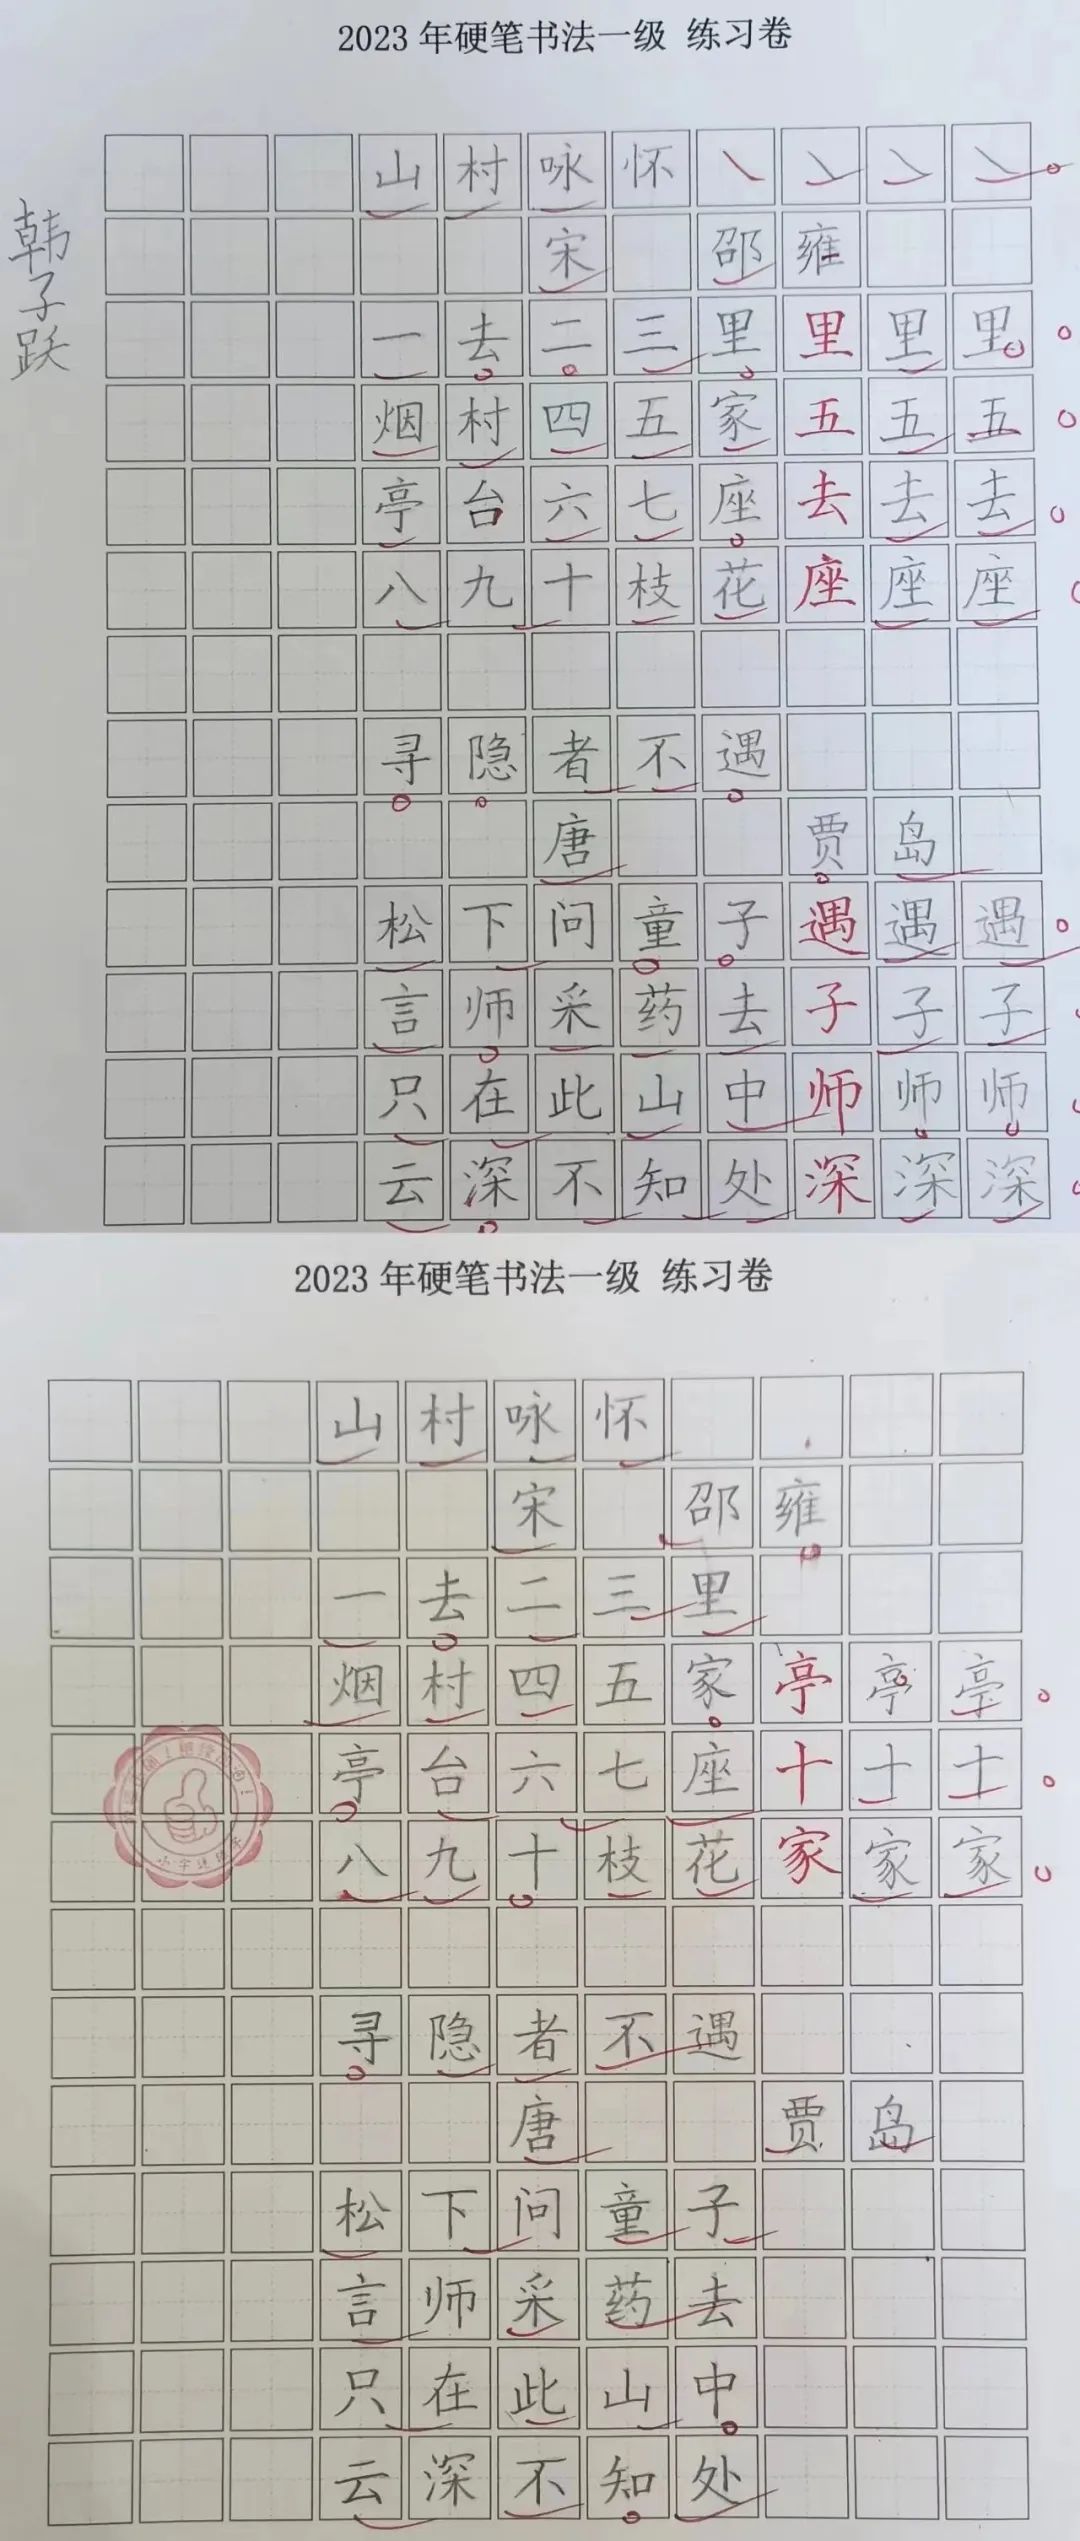 2023 年硬笔书法一级 练习卷
韩子跃
山村咏怀
宋 邵雍
一去二三里里里里
烟村四五家五五五
亭台六七座去去去
八九十枝花座座座
寻隐者不遇
唐 贾岛
松下问童子遇遇遇
言师采药去子子子
只在此山中师师师
云深不知处深深深
2023 年硬笔书法一级 练习卷
山村咏怀
宋 邵雍
一去二三里
烟村四五家亭亭亭
亭台六七座十十十
八九十枝花家家家
寻隐者不遇
唐 贾岛
松下问童子
言师采药去
只在此山中
云深不知处